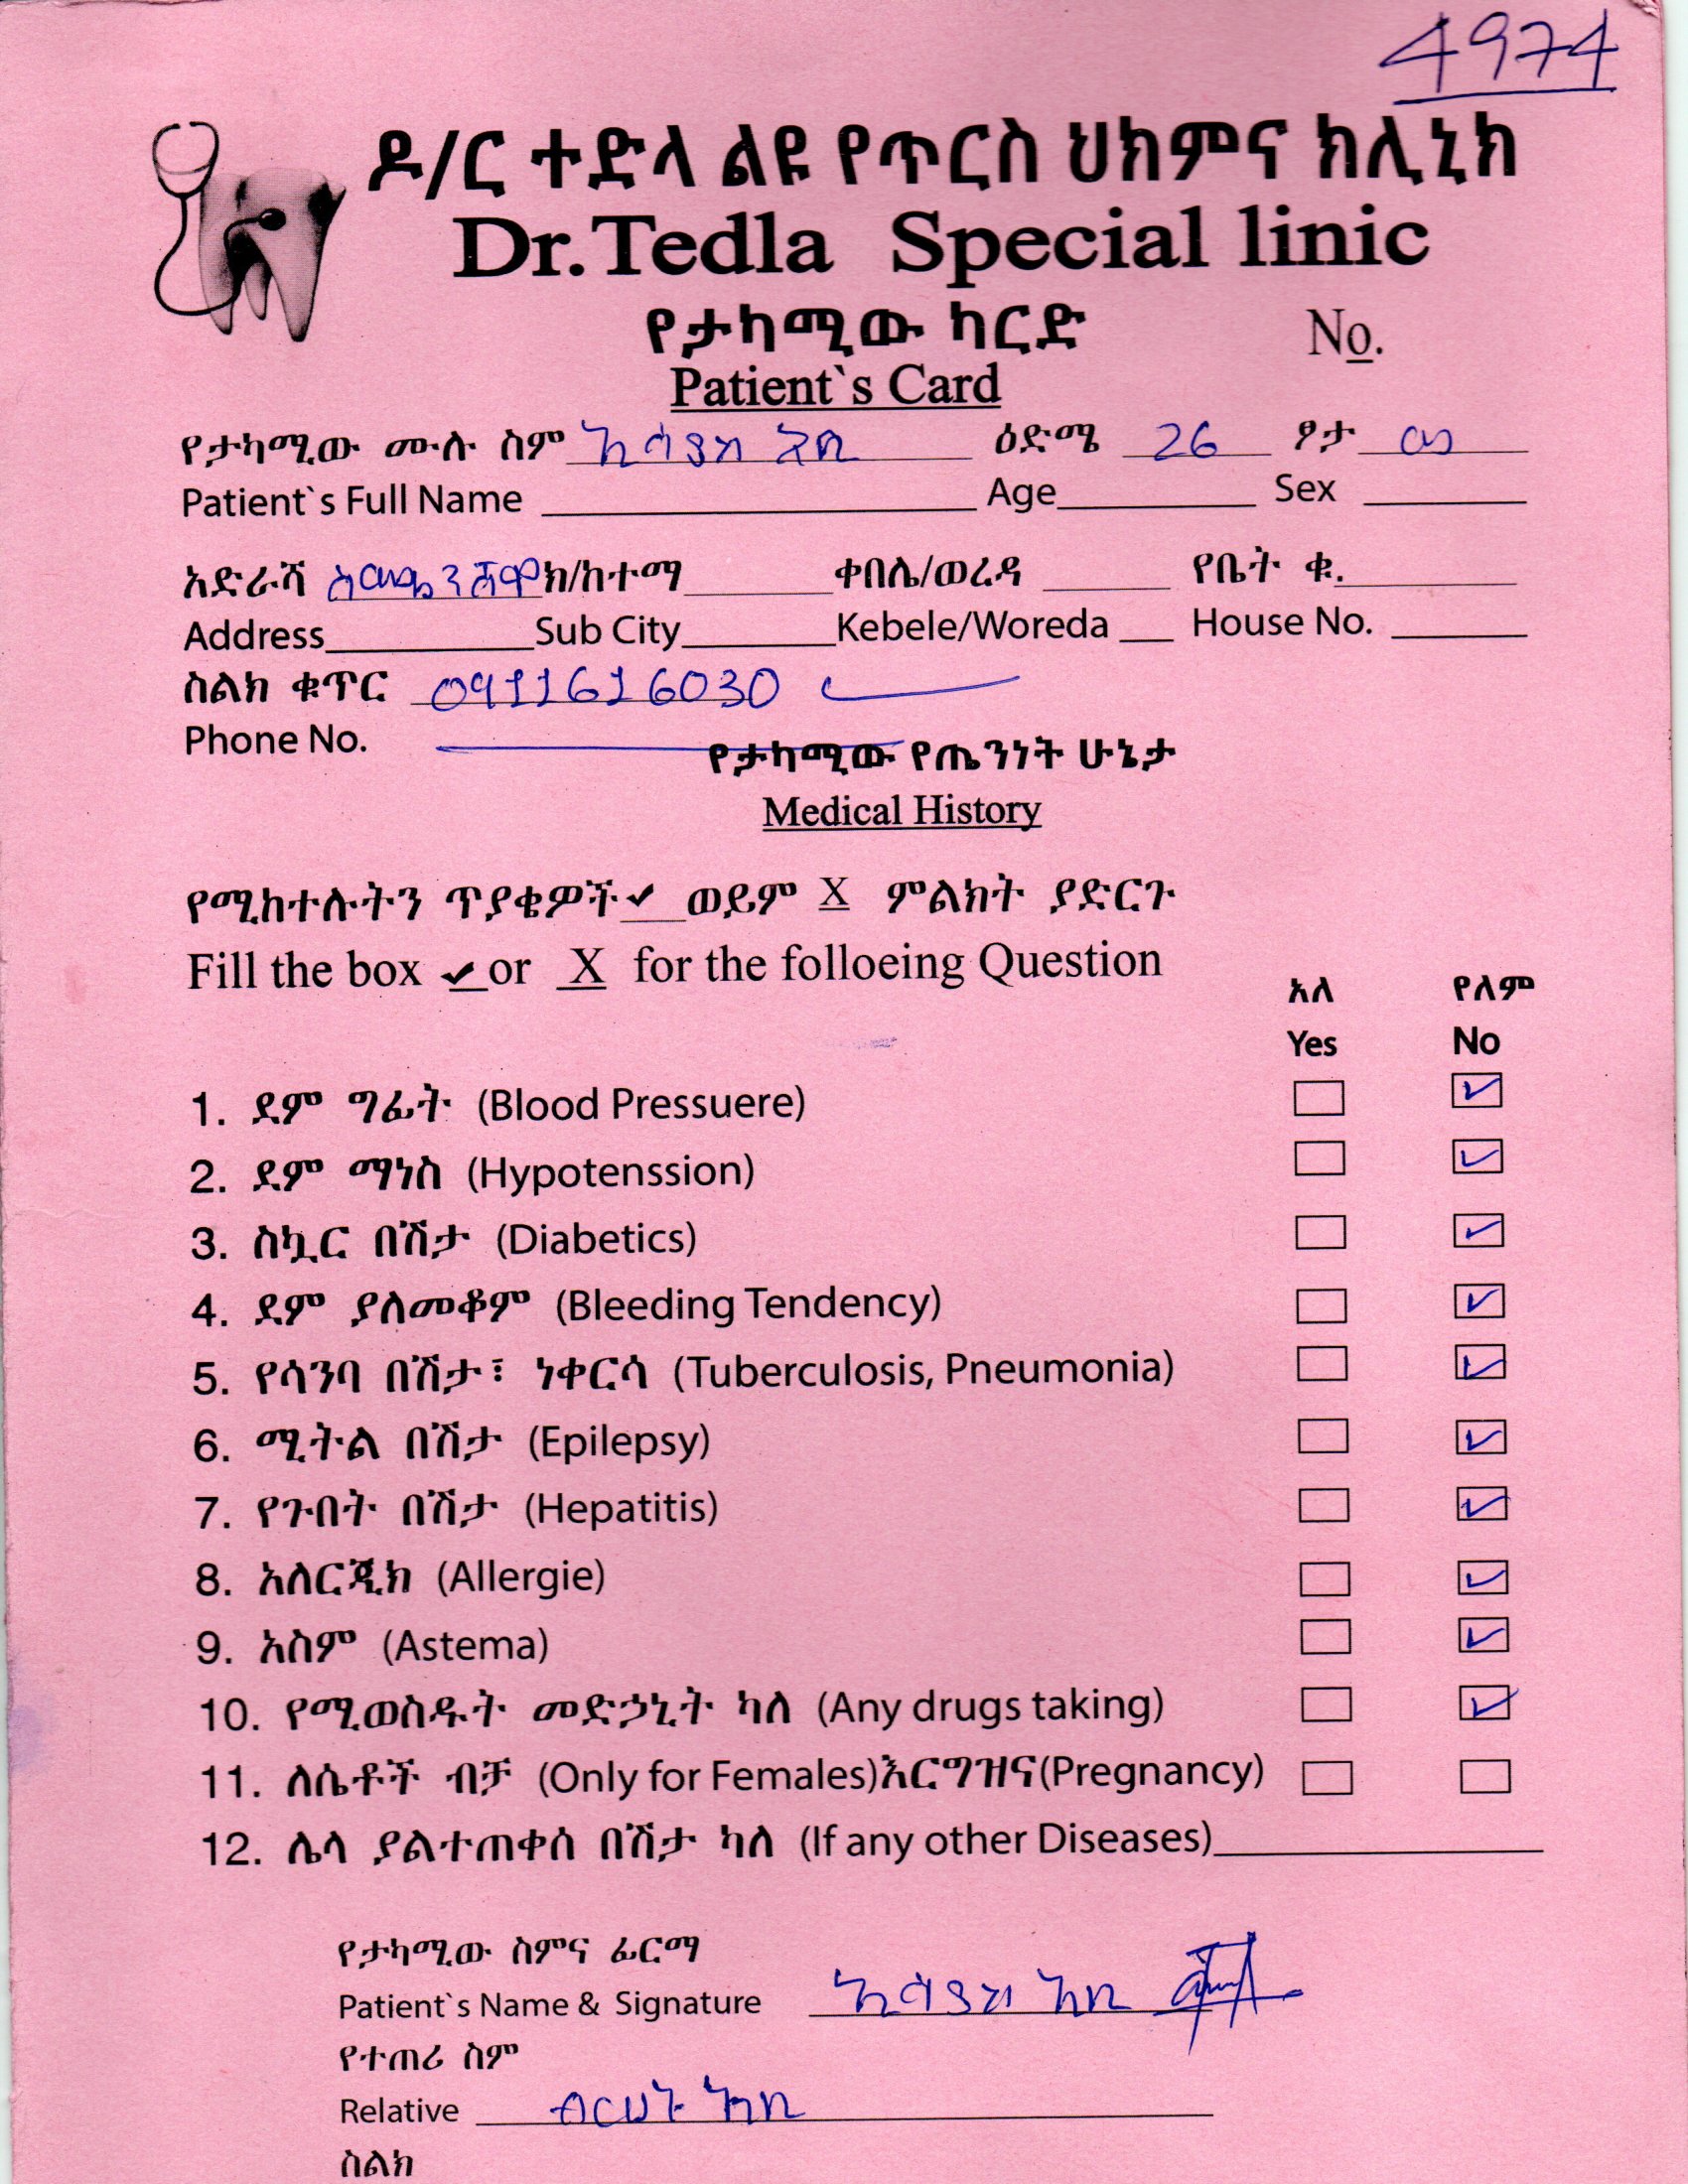 4974
ዶ/ር ተድላ ልዩ የጥርስ ህክምና ክሊኒክ
Dr.Tedla Special linic
የታካሚው ካርድ No.
Patient`s Card
የታካሚው ሙሉ ስም ዕድሜ 26 ፆታ ወ
Patient`s Full Name Age Sex
አድራሻ ክ/ከተማ ቀበሌ/ወረዳ የቤት ቁ.
Address Sub City Kebele/Woreda House No.
ስልክ ቁጥር 0911616030
Phone No.
የታካሚው የጤንነት ሁኔታ
Medical History
የሚከተሉትን ጥያቄዎች ✓ ወይም X ምልክት ያድርጉ
Fill the box ✓ or X for the folloeing Question
አለ የለም
Yes No
1. ደም ግፊት (Blood Pressuere) ✓
2. ደም ማነስ (Hypotenssion) ✓
3. ስኳር በሽታ (Diabetics) ✓
4. ደም ያለመቆም (Bleeding Tendency) ✓
5. የሳንባ በሽታ፣ ነቀርሳ (Tuberculosis, Pneumonia) ✓
6. ሚትል በሽታ (Epilepsy) ✓
7. የጉበት በሽታ (Hepatitis) ✓
8. አለርጂክ (Allergie) ✓
9. አስም (Astema) ✓
10. የሚወስዱት መድኃኒት ካለ (Any drugs taking) ✓
11. ለሴቶች ብቻ (Only for Females)እርግዝና(Pregnancy)
12. ሌላ ያልተጠቀሰ በሽታ ካለ (If any other Diseases)
የታካሚው ስምና ፊርማ
Patient`s Name & Signature
የተጠሪ ስም
Relative
ስልክ